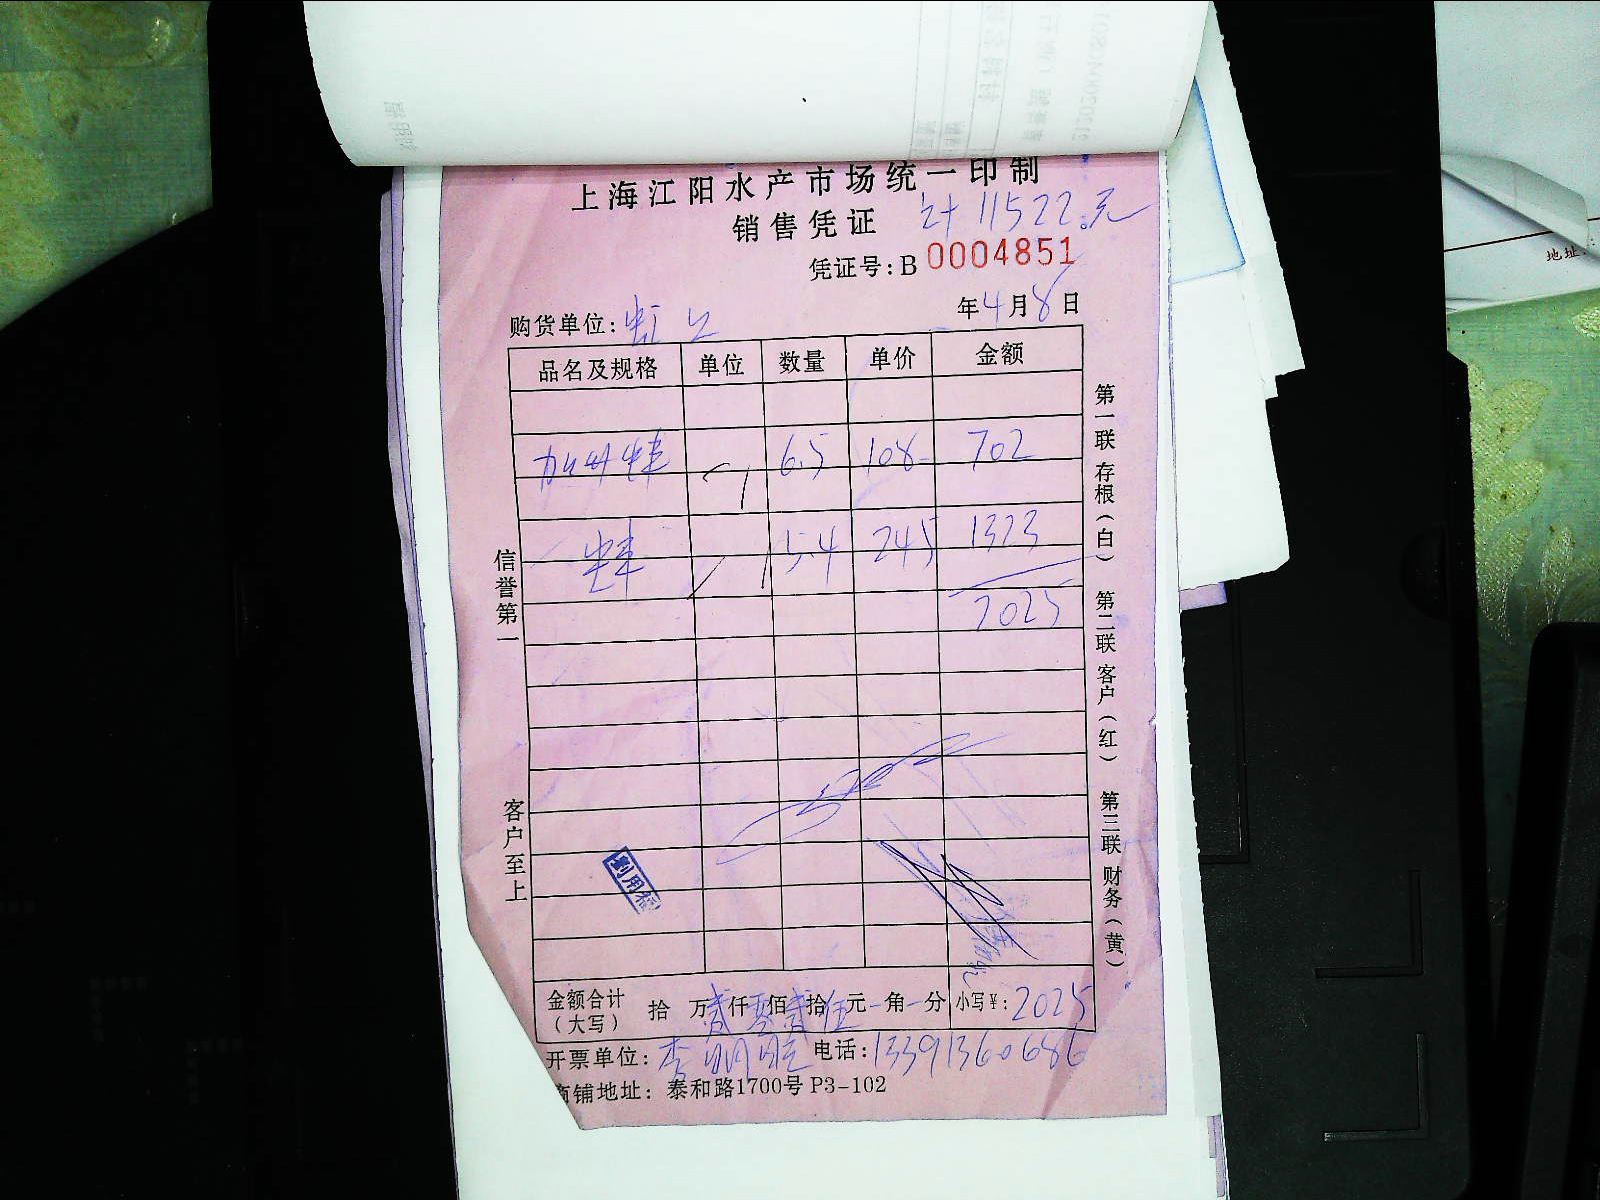 上海江阳水产市场统一印制
销售凭证 计11522.元
凭证号:B 0004851
年4月8日
购货单位:虹上
品名及规格 单位 数量 单价 金额
加州蚌 6.5 108 702
蚌 5.4 245 1323
2025
信誉第一 客户至上
第一联存根(白) 第二联客户(红) 第三联财务(黄)
金额合计(大写) 拾 万贰仟零佰贰拾伍元-角-分 小写¥:2025
开票单位:李明胜 电话:13391360686
商铺地址:泰和路1700号 P3-102
地址: